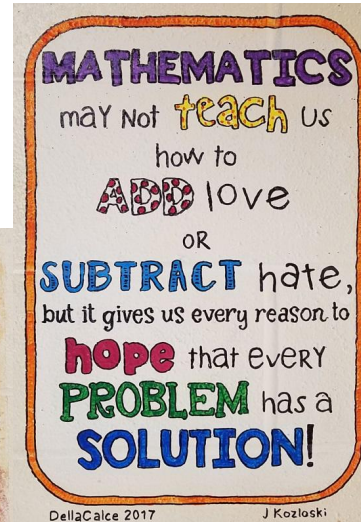 MATHEMATICS
may Not teach us
how to
ADD love
OR
SUBTRACT hate,
but it gives us every reason to
hope that eveRY
PROBLEM has a
SOLUTION!
DellaCalce 2017 J Kozloski